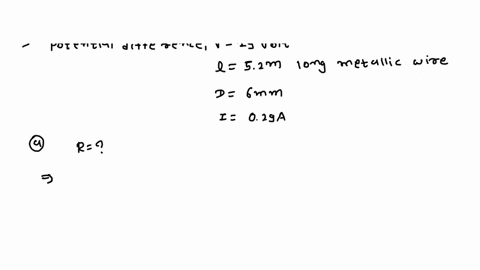 potential difference, V = 29 volt
l = 5.2m long metallic wire
D = 6mm
I = 0.29A
(a) R = ?
⇒